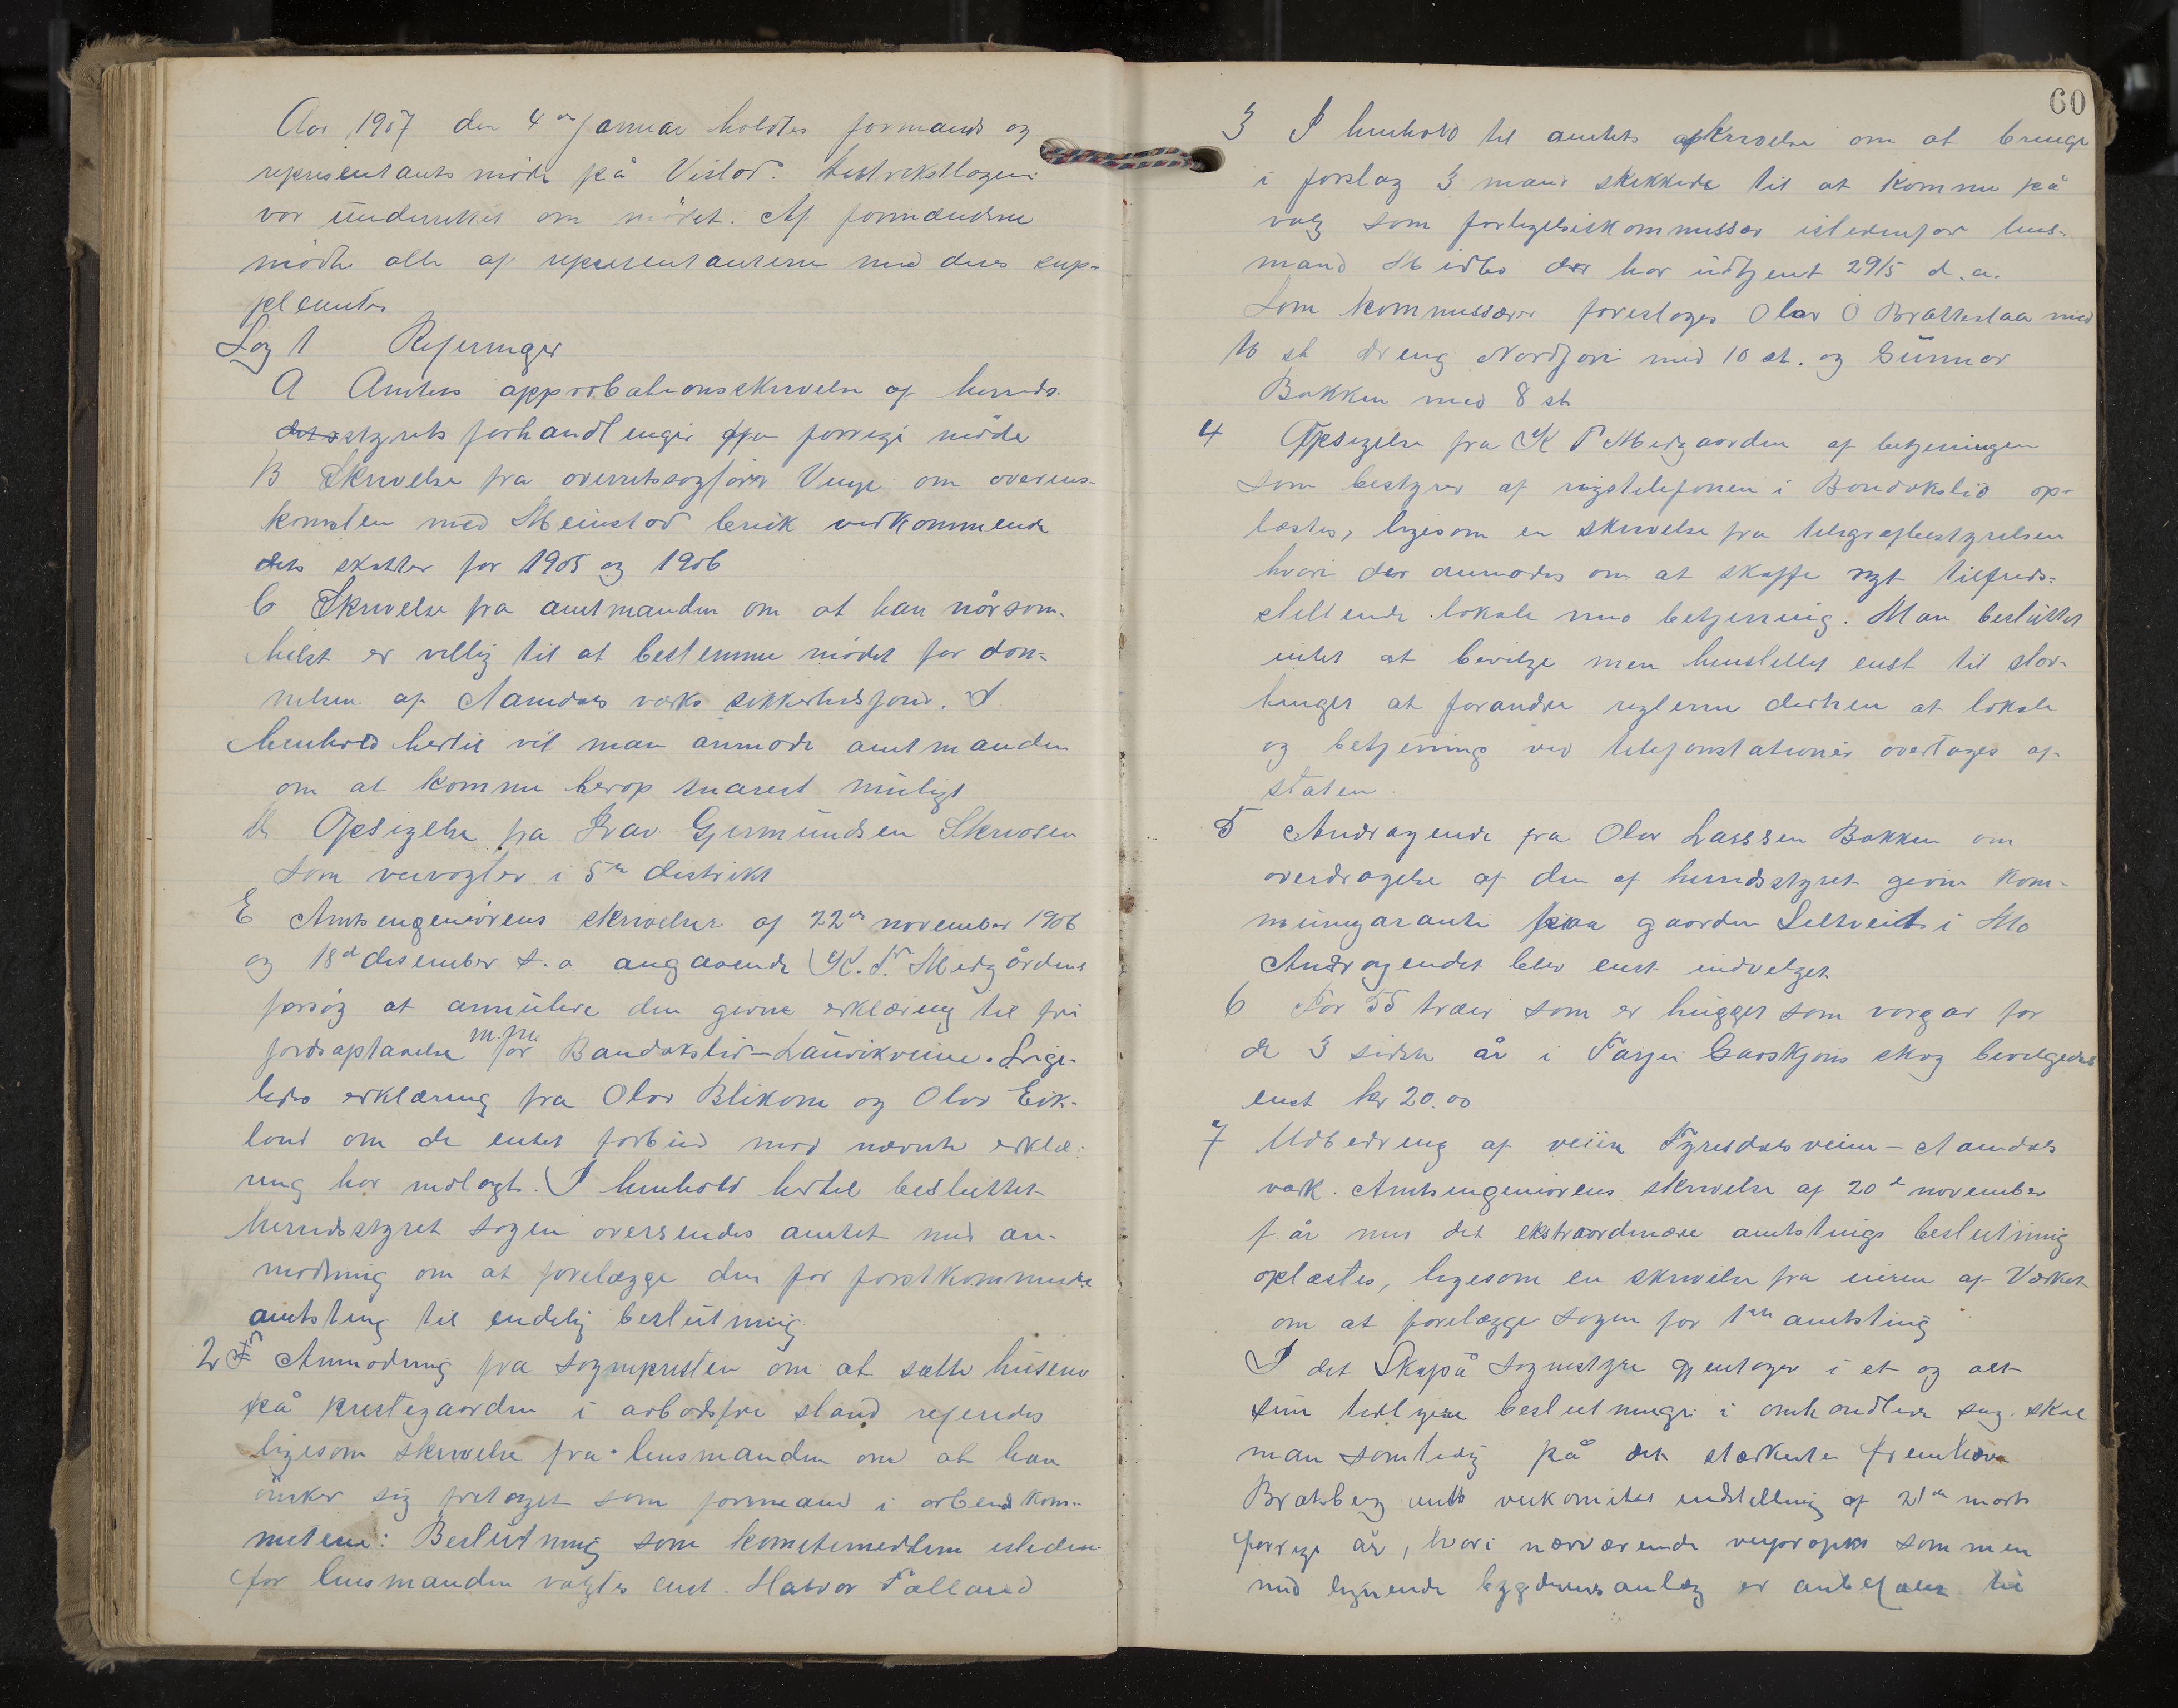 Aar 1907 den 4de Januar holdtes formands og
representantsmöde på Vistad.
var underrettet om mödet. Af formændene
mödte alle af representanterne med deres sup-
pleanter
Sag 1 Referinger
A Amtets approbationsskrivelse af herreds-
styrets forhandlinger fra forrige möde
B Skrivelse fra overretssagförer Venge om overens-
komsten med Meinstad bruk vedkommende
dets skatter for 1905 og 1906
C Skrivelse fra amtmanden om at han nårsom-
helst er villig til at bestemme mödet for dan-
nelsen af Aamdals værks sikkerhedsfond. I
henhold hertil vil man anmode amtmanden
om at komme herop snarest muligt
D Opsigelse fra Ivar Gjermundsen Skrvosen
som veivogter i 5te distrikt
E Amtsingeniörens skrivelser af 22de november 1906
og 18d desember s.a angaaende K. T. Medgårdens
forsög at annulere den givne erklæring til fri
m.m.
jordaftaaelse for Bandakslid-Laurikveiene. Lige-
ledes erklæring fra Olav Blikom og Olav Eik-
land om de intet forbud mod nævnte erklæ-
ring har nedlagt. I henhold hertil besluttet
herredsstyret sagen oversendes amtet med an-
modning om at forelægge den for förstkommende
amtsting til endelig beslutning
2 Anmodning fra sognepresten om at sætte husene
på prestegaarden i arbodsfri stand refereredes
ligesom skrivelse fra lensmanden om at han
önsker sig fritaget som formand i arbeids kom-
meteen: Beslutning som kometemedlem isteden-
for lensmanden valgtes enst. Halvor Felland
60
3 I henhold til amtets skrivelse om at bringe
i forslag 3 mænd skikkede til at komme på
valg som forligelseskommissær istedenfor lens-
mand Midbö der har udtjent 29/5 d.a.
Som kommissærer foresloges Olav O Brattestaa med
10 st Dreng Nordjore med 10 st. og Gunnar
Bakken med 8 st
4 Opsigelse fra K T Medgaarden af betjeningen
som bestyrer af rigstelefonen i Bandakslid op-
læstes, ligesom en skrivelse fra telegrafbestyrelsen
hvori der anmodes om at skaffe nyt tilfreds-
stillende lokale med betjening. Man besluttet
intet at bevilge men henstillet enst til stor-
tinget at forandre reglerne derhen at lokale
og betjening ved telefonstationer overtages af
staten.
5 Andragende fra Olav Larssen Bakken om
overdragelse af den af herredsstyret givne kom-
munegaranti paa gaarden Seltveit i Mo
Andragendet blev enst indvilget
6 For 55 træer som er hugget som vargar for
de 3 sidste år i Tarjei Gaaskjöns skog bevilgedes
enst kr 20.00
7 Udbedring af veien Fyresdalsveien - Aamdals
værk. Amtsingeniörens skrivelse af 20de november
f. år med det ekstraordinære amtstings beslutning
oplæstes, ligesom en skrivelse fra eieren af Værket
om at forelægge sagen for 1ste amtsting
I det Skafså sognestyre gjentager i et og alt
sine tidligere beslutninger i omhandlede sag. skal
man samtidig på det stærkeste fremhæve
Bratsberg amts veikomites indstilling af 21de marts
forrige år, hvori nærværende veiprojekt sammen
med lignende bygdeveisanlæg er anbefalet til